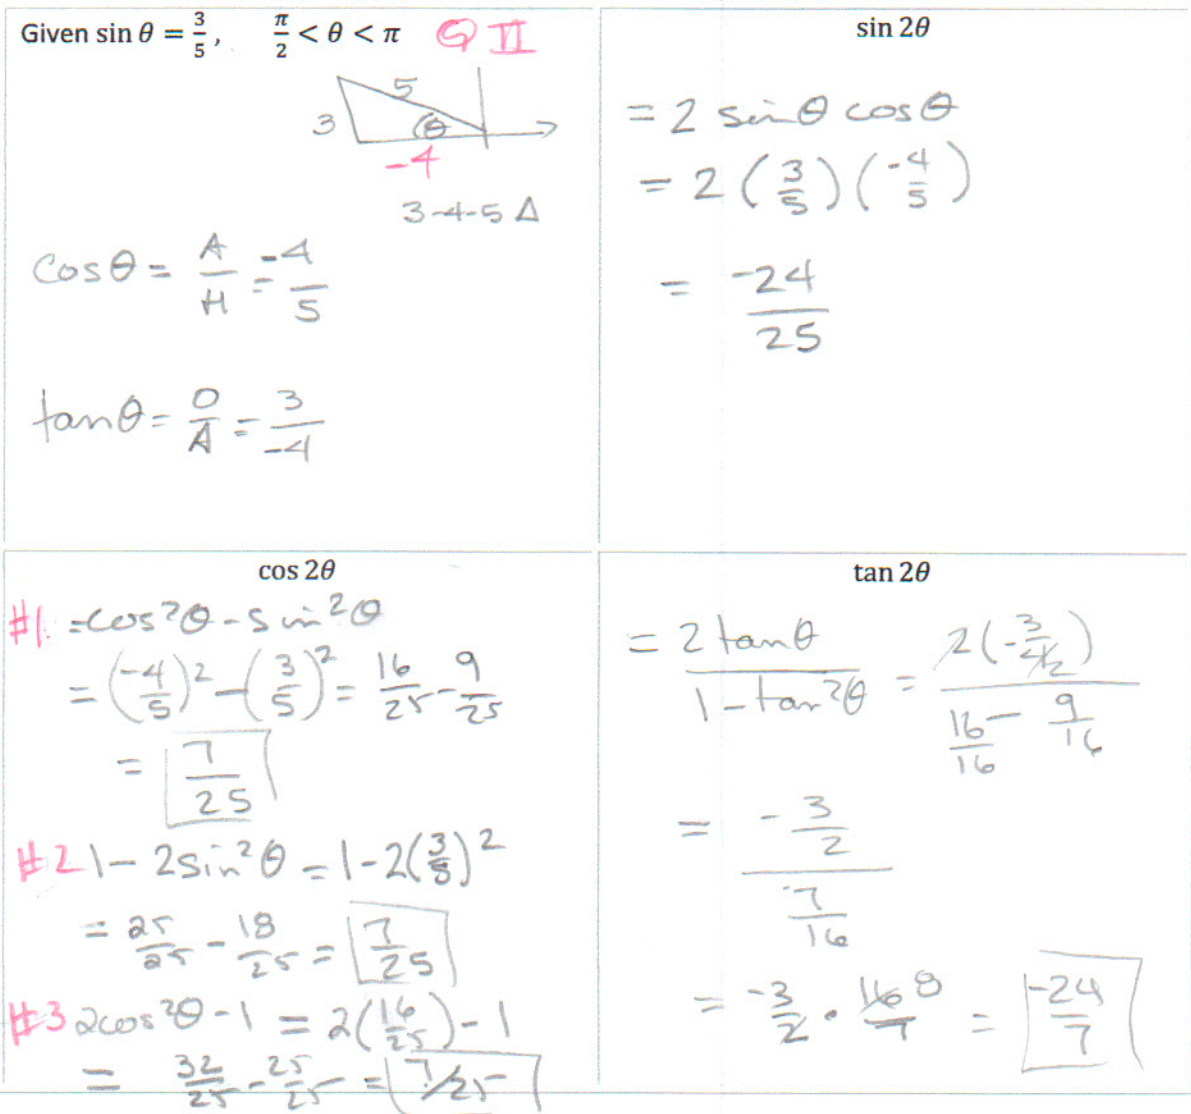 Given sin θ = 3/5, π/2 < θ < π Q II
5
3 θ
-4
3-4-5 Δ
cos θ = A/H = -4/5
tan θ = O/A = 3/-4
sin 2θ
= 2 sin θ cos θ
= 2 (3/5)(-4/5)
= -24/25
cos 2θ
#1. = cos²θ - sin²θ
= (-4/5)² - (3/5)² = 16/25 - 9/25
= 7/25
#2 1 - 2sin²θ = 1 - 2(3/5)²
= 25/25 - 18/25 = 7/25
#3 2cos²θ - 1 = 2(16/25) - 1
= 32/25 - 25/25 = 7/25
tan 2θ
= 2 tan θ / 1 - tan²θ = 2(-3/4 2) / 16/16 - 9/16
= -3/2 / 7/16
= -3/2 · 16 8/7 = -24/7